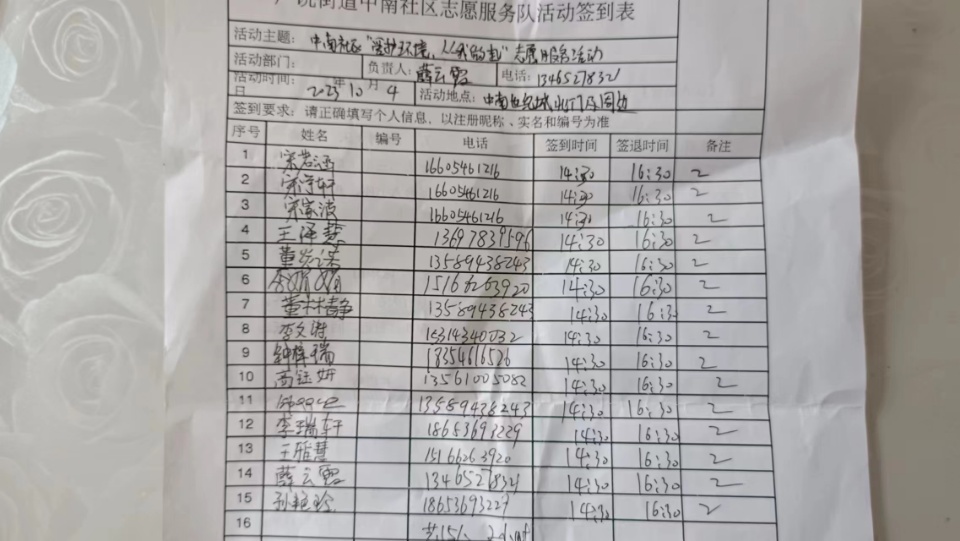 街道中南社区志愿服务队活动签到表
活动主题: 中南社区"爱护环境, 从我做起"志愿服务活动
活动部门: 负责人: 薛云霞 电话: 13465278321
活动时间: 2023年10月4日 活动地点: 中南世纪城北门及周边
签到要求: 请正确填写个人信息、以注册昵称、实名和编号为准
序号 姓名 编号 电话 签到时间 签退时间 备注
1 宋若涵 16605461216 14:30 16:30 2
2 16605461216 14:30 16:30 2
3 宋家波 16605461216 14:30 16:30 2
4 王泽梦 13697839596 14:30 16:30 2
5 13589438243 14:30 16:30 2
6 李娟娟 15166263920 14:30 16:30 2
7 董林静 13589438243 14:30 16:30 2
8 李文涛 15314340032 14:30 16:30 2
9 钟梓瑞 18354616526 14:30 16:30 2
10 高钰妍 13561005082 14:30 16:30 2
11 13589438243 14:30 16:30 2
12 李瑞轩 18653693229 14:30 16:30 2
13 王雅慧 15166263920 14:30 16:30 2
14 薛云霞 13465278321 14:30 16:30 2
15 孙艳玲 18653693229 14:30 16:30 2
16 共15人